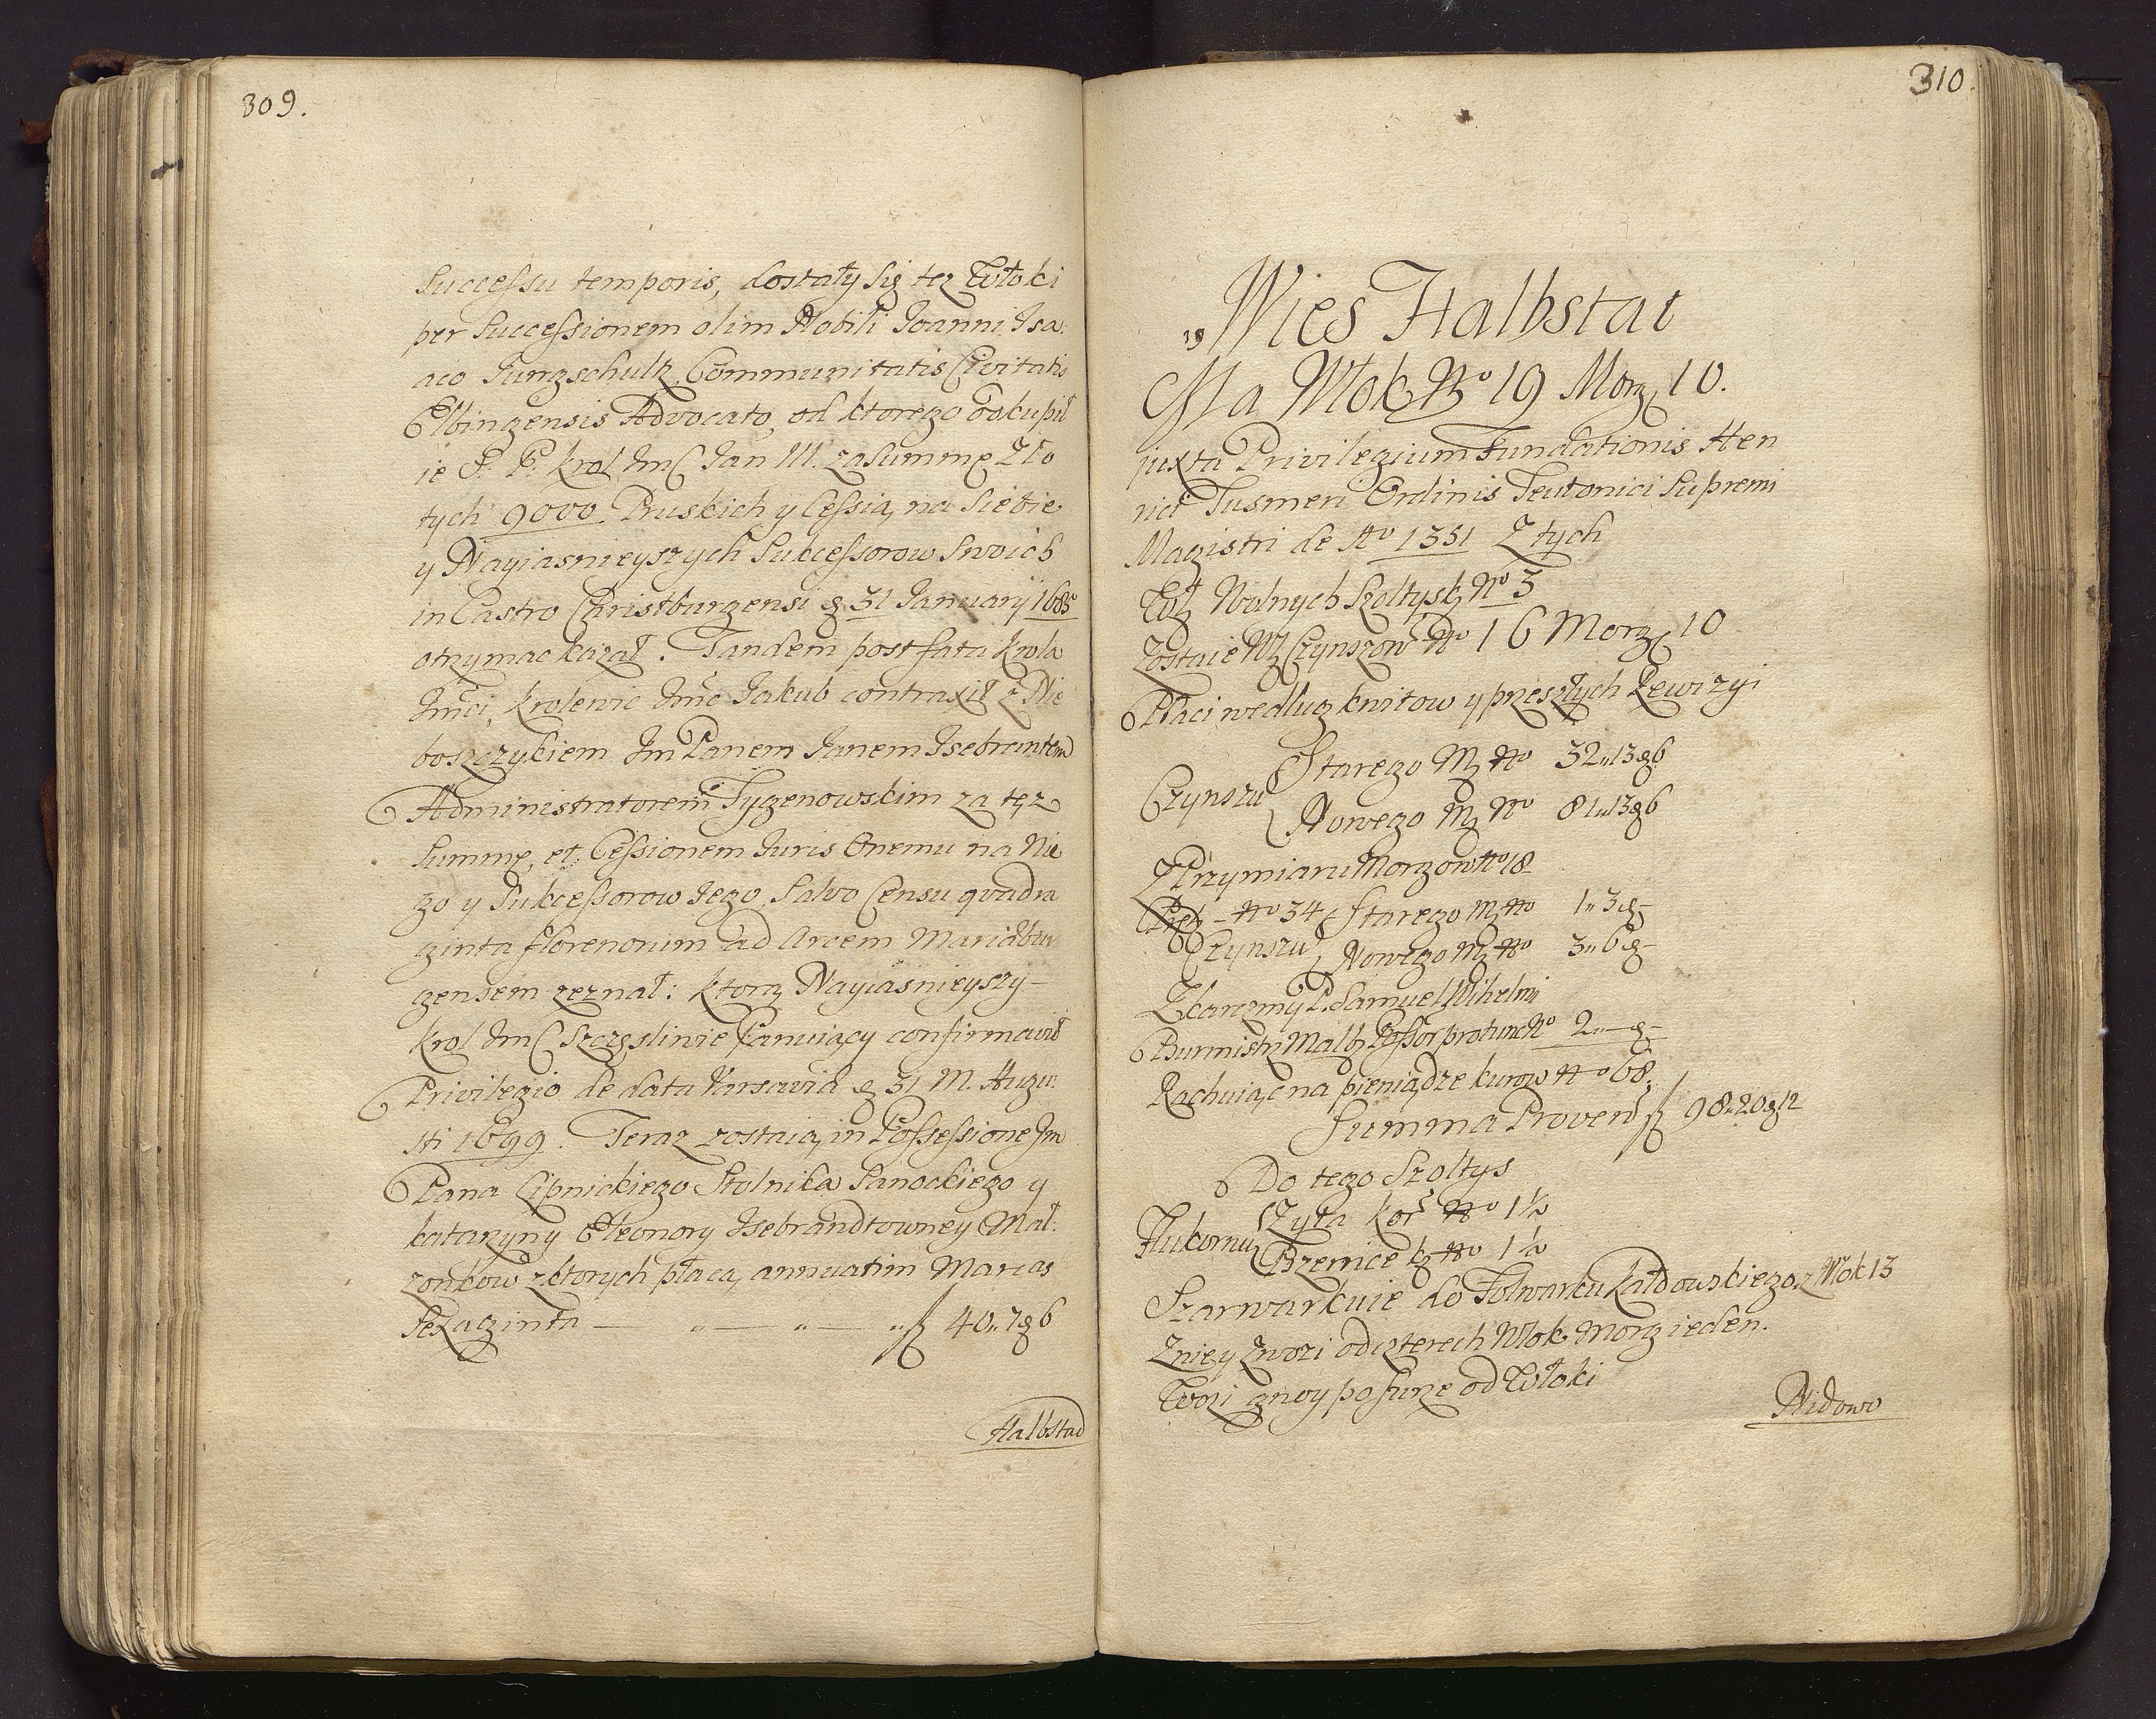 309.
Successu temporis, dostały się tez Włoki
per Successionem olim Nobili Joanni Isa:
aco Jungschultz Communitatis Civitatis
Elbingensis Advocato, od ktorego odkupił
ie S. P. Krol Jmć Jan III. za Summę Zło
tych 9000. Pruskich y Cessią na Siebie
y Nayiasnieyszych Sukcessorow Swoich
in Castro Christburgensi d. 31 Januarÿ 1685
otrzymac kazał. Tandem post fata Krola
Jmći, Krolewic Jmć Jakub contraxit z Nie
boszczykiem Jm Panem Janem Isebrantem
Administratorem Tygenowskim za tęz
Summę, et Cessionem Juris Onemu na Nie
go y Sukcessorow Jego, Salvo Censu quadra
ginta florenorum ad Arcem Mariæbur
gensem zeznał: ktorą Nayiasnieyszy
Krol Jmć Szczęsliwie Panuiący confirmavit
Privilegio de data Varsaviæ d. 31 M. Augu:
sti 1699. Teraz zostaią in Possessione Jm
Pana Lipnickiego Stolnika Sanockiego y
Katarzyny Eleonory Isebrandtowney Mał:
zonkow z ktorych płacą annuatim Marcas
Sexaginta — „ — „ — „ f 40„ 7 g 6
Halbstad
310.
19 Wies Halbstat
Ma Włok No 19 Morg 10.
juxta Privilegium Fundationis Hen
rici Tusmeri Ordinis Teutonici Supremi
Magistri de Ao 1351 Z tych
Wł Wolnych Szołtysk No 3
Zostaie Wł Czynszow No 16 Morg 10
Płaci według kwitow y przeszłych Rewizyi
Czynszu Starego M No 32„ 13 g 6
Nowego M No 81„ 13 g 6
Z Przymiaru Morgow No 18
Pręt No 34 Starego M No 1„ 3 g -
Czynszu Nowego M No 3„ 6 g -
Z karczmy P. Samuel Wilhelmi
Burmistrz Malb. Possor pro tunc No 2„ — g -
Rachuiąc na pieniądze kurow No 68.
Summa Proven f 98„ 20 g 12
Do tego Szołtys
Hukornu Zyta Kor No 1 1/2
Przenice k No 1 1/2
Szarwarkuie do Folwarku Kałdowskiego z Włok 13
Znie y Zwozi od czterech Włok Morg ieden.
Wozi gnoy po furze od Włoki
Nidowo